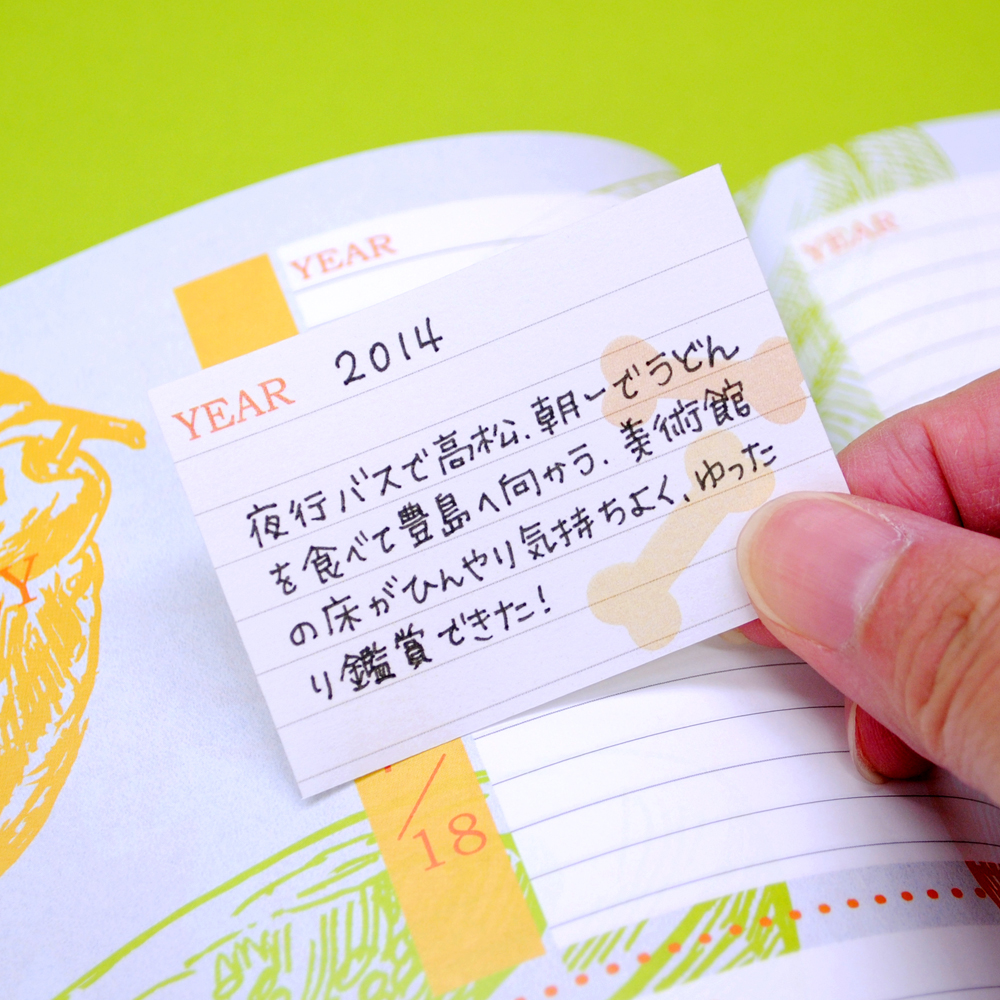 YEAR
YEAR
YEAR 2014
夜行バスで高松。朝一でうどん
を食べて豊島へ向かう。美術館
の床がひんやり気持ちよく、ゆった
り鑑賞できた！
Y
/
18